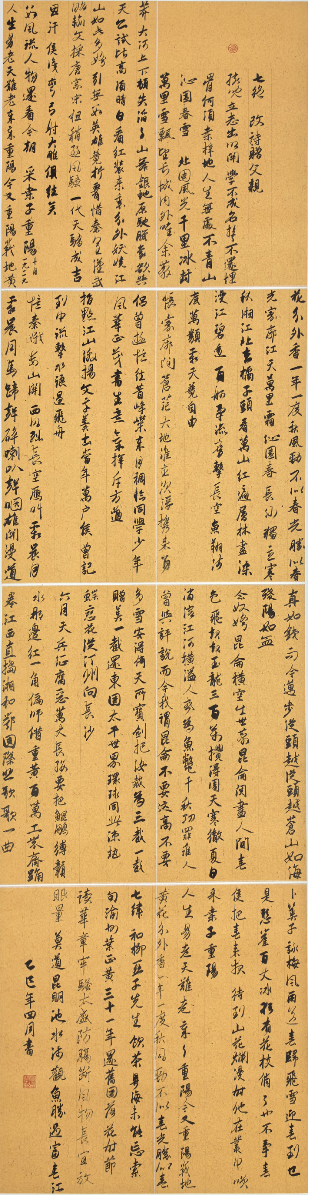 七绝 改诗赠父亲
孩儿立志出乡关 学不成名誓不还 埋
骨何须桑梓地 人生无处不青山
沁园春雪 北国风光 千里冰封
万里雪飘 望长城内外 唯余莽
莽 大河上下 顿失滔滔 山舞银蛇 原驰蜡象 欲与
天公试比高 须晴日 看红装素裹 分外妖娆 江
山如此多娇 引无数英雄竞折腰 惜秦皇汉武
略输文采 唐宗宋祖 稍逊风骚 一代天骄 成吉
思汗 只识弯弓射大雕 俱往矣
数风流人物 还看今朝 采桑子重阳
人生易老天难老 岁岁重阳 今又重阳 战地黄
花分外香 一年一度秋风劲 不似春光 胜似春
光 寥廓江天万里霜 沁园春长沙 独立寒
秋 湘江北去 橘子洲头 看万山红遍 层林尽染
漫江碧透 百舸争流 鹰击长空 鱼翔浅
底 万类霜天竞自由
怅寥廓 问苍茫大地 谁主沉浮 携来百
侣曾游 忆往昔峥嵘岁月稠 恰同学少年
风华正茂 书生意气 挥斥方遒
指点江山 激扬文字 粪土当年万户侯 曾记
到中流击水 浪遏飞舟
忆秦娥娄山关 西风烈 长空雁叫霜晨月
霜晨月 马蹄声碎 喇叭声咽 雄关漫道
真如铁 而今迈步从头越 从头越 苍山如海
残阳如血
念奴娇昆仑 横空出世 莽昆仑 阅尽人间春
色 飞起玉龙三百万 搅得周天寒彻 夏日
消溶 江河横溢 人或为鱼鳖 千秋功罪 谁人
曾与评说 而今我谓昆仑 不要这高 不要
多雪 安得倚天抽宝剑 把汝裁为三截 一截
赠美 一截还东国 太平世界 环球同此凉热
蝶恋花从汀州向长沙
六月天兵征腐恶 万丈长缨要把鲲鹏缚 赣
水那边红一角 偏师借重黄 百万工农齐踊
卷江西直捣湘和鄂 国际悲歌歌一曲
卜算子咏梅 风雨送春归 飞雪迎春到 已
是悬崖百丈冰 犹有花枝俏 俏也不争春
只把春来报 待到山花烂漫时 她在丛中笑
采桑子重阳
人生易老天难老 岁岁重阳 今又重阳 战地
黄花分外香 一年一度秋风劲 不似春光 胜似春
七律 和柳亚子先生 饮茶粤海未能忘 索
句渝州叶正黄 三十一年还旧国 落花时节
读华章 牢骚太盛防肠断 风物长宜放
眼量 莫道昆明池水浅 观鱼胜过富春江
乙巳年四月书